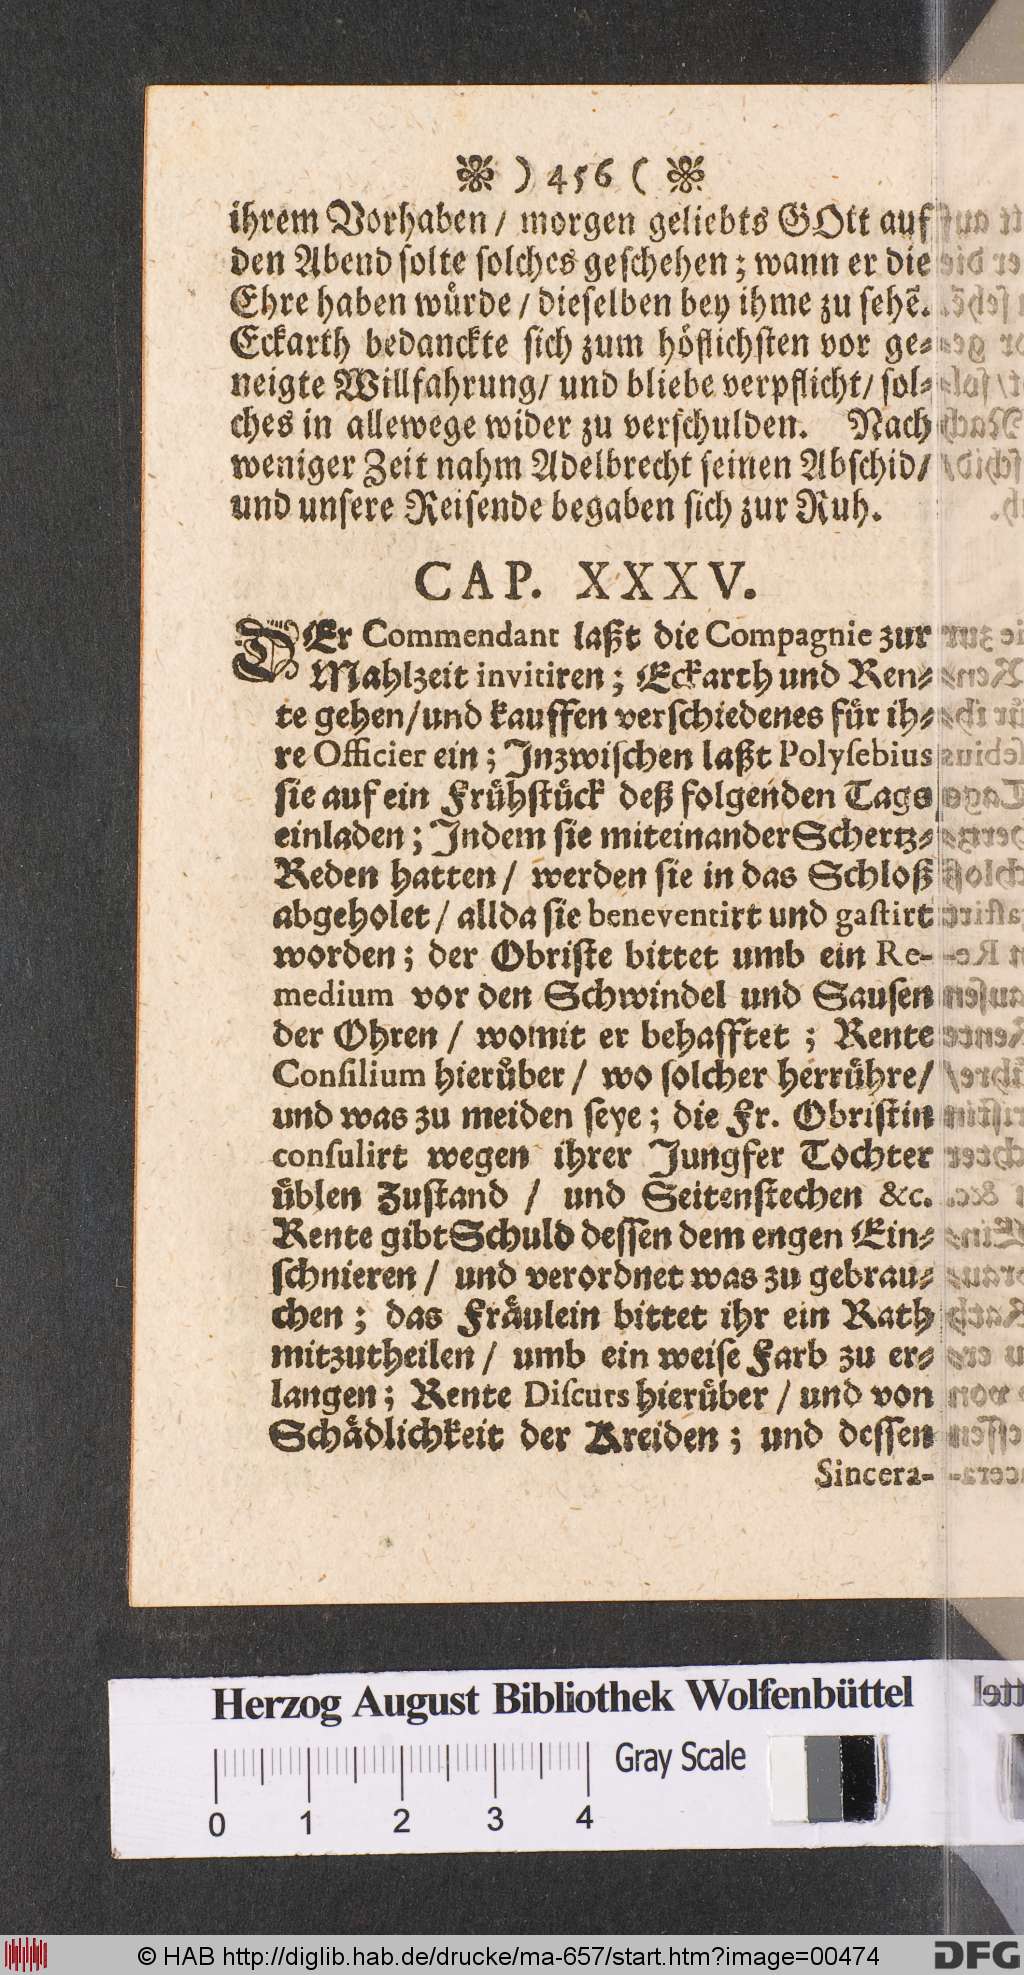 ) 456 (
ihrem Vorhaben / morgen geliebts GOtt auf
den Abend solte solches geschehen; wann er die
Ehre haben wuͤrde / dieselben bey ihme zu sehẽ.
Eckarth bedanckte sich zum hoͤflichsten vor ge-
neigte Willfahrung/ und bliebe verpflicht/ sol-
ches in allewege wider zu verschulden. Nach
weniger Zeit nahm Adelbrecht seinen Abschid/
und unsere Reisende begaben sich zur Ruh.
CAP. XXXV.
DEr Commendant laßt die Compagnie zur
Mahlzeit invitiren; Eckarth und Ren-
te gehen/und kauffen verschiedenes fuͤr ih-
re Officier ein; Inzwischen laßt Polysebius
sie auf ein Fruͤhstuͤck deß folgenden Tags
einladen; Indem sie miteinander Schertz-
Reden hatten / werden sie in das Schloß
abgeholet / allda sie beneventirt und gastirt
worden; der Obriste bittet umb ein Re-
medium vor den Schwindel und Sausen
der Ohren / womit er behafftet ; Rente
Consilium hieruͤber / wo solcher herruͤhre/
und was zu meiden seye; die Fr. Obristin
consulirt wegen ihrer Jungfer Tochter
uͤblen Zustand / und Seitenstechen &c.
Rente gibt Schuld dessen dem engen Ein-
schnieren / und verordnet was zu gebrau-
chen; das Fraͤulein bittet ihr ein Rath
mitzutheilen / umb ein weise Farb zu er-
langen; Rente Discurs hieruͤber / und von
Schaͤdlichkeit der Kreiden; und dessen
Sincera-
Herzog August Bibliothek Wolfenbüttel
Gray Scale
0 1 2 3 4
© HAB http://diglib.hab.de/drucke/ma-657/start.htm?image=00474
DFG